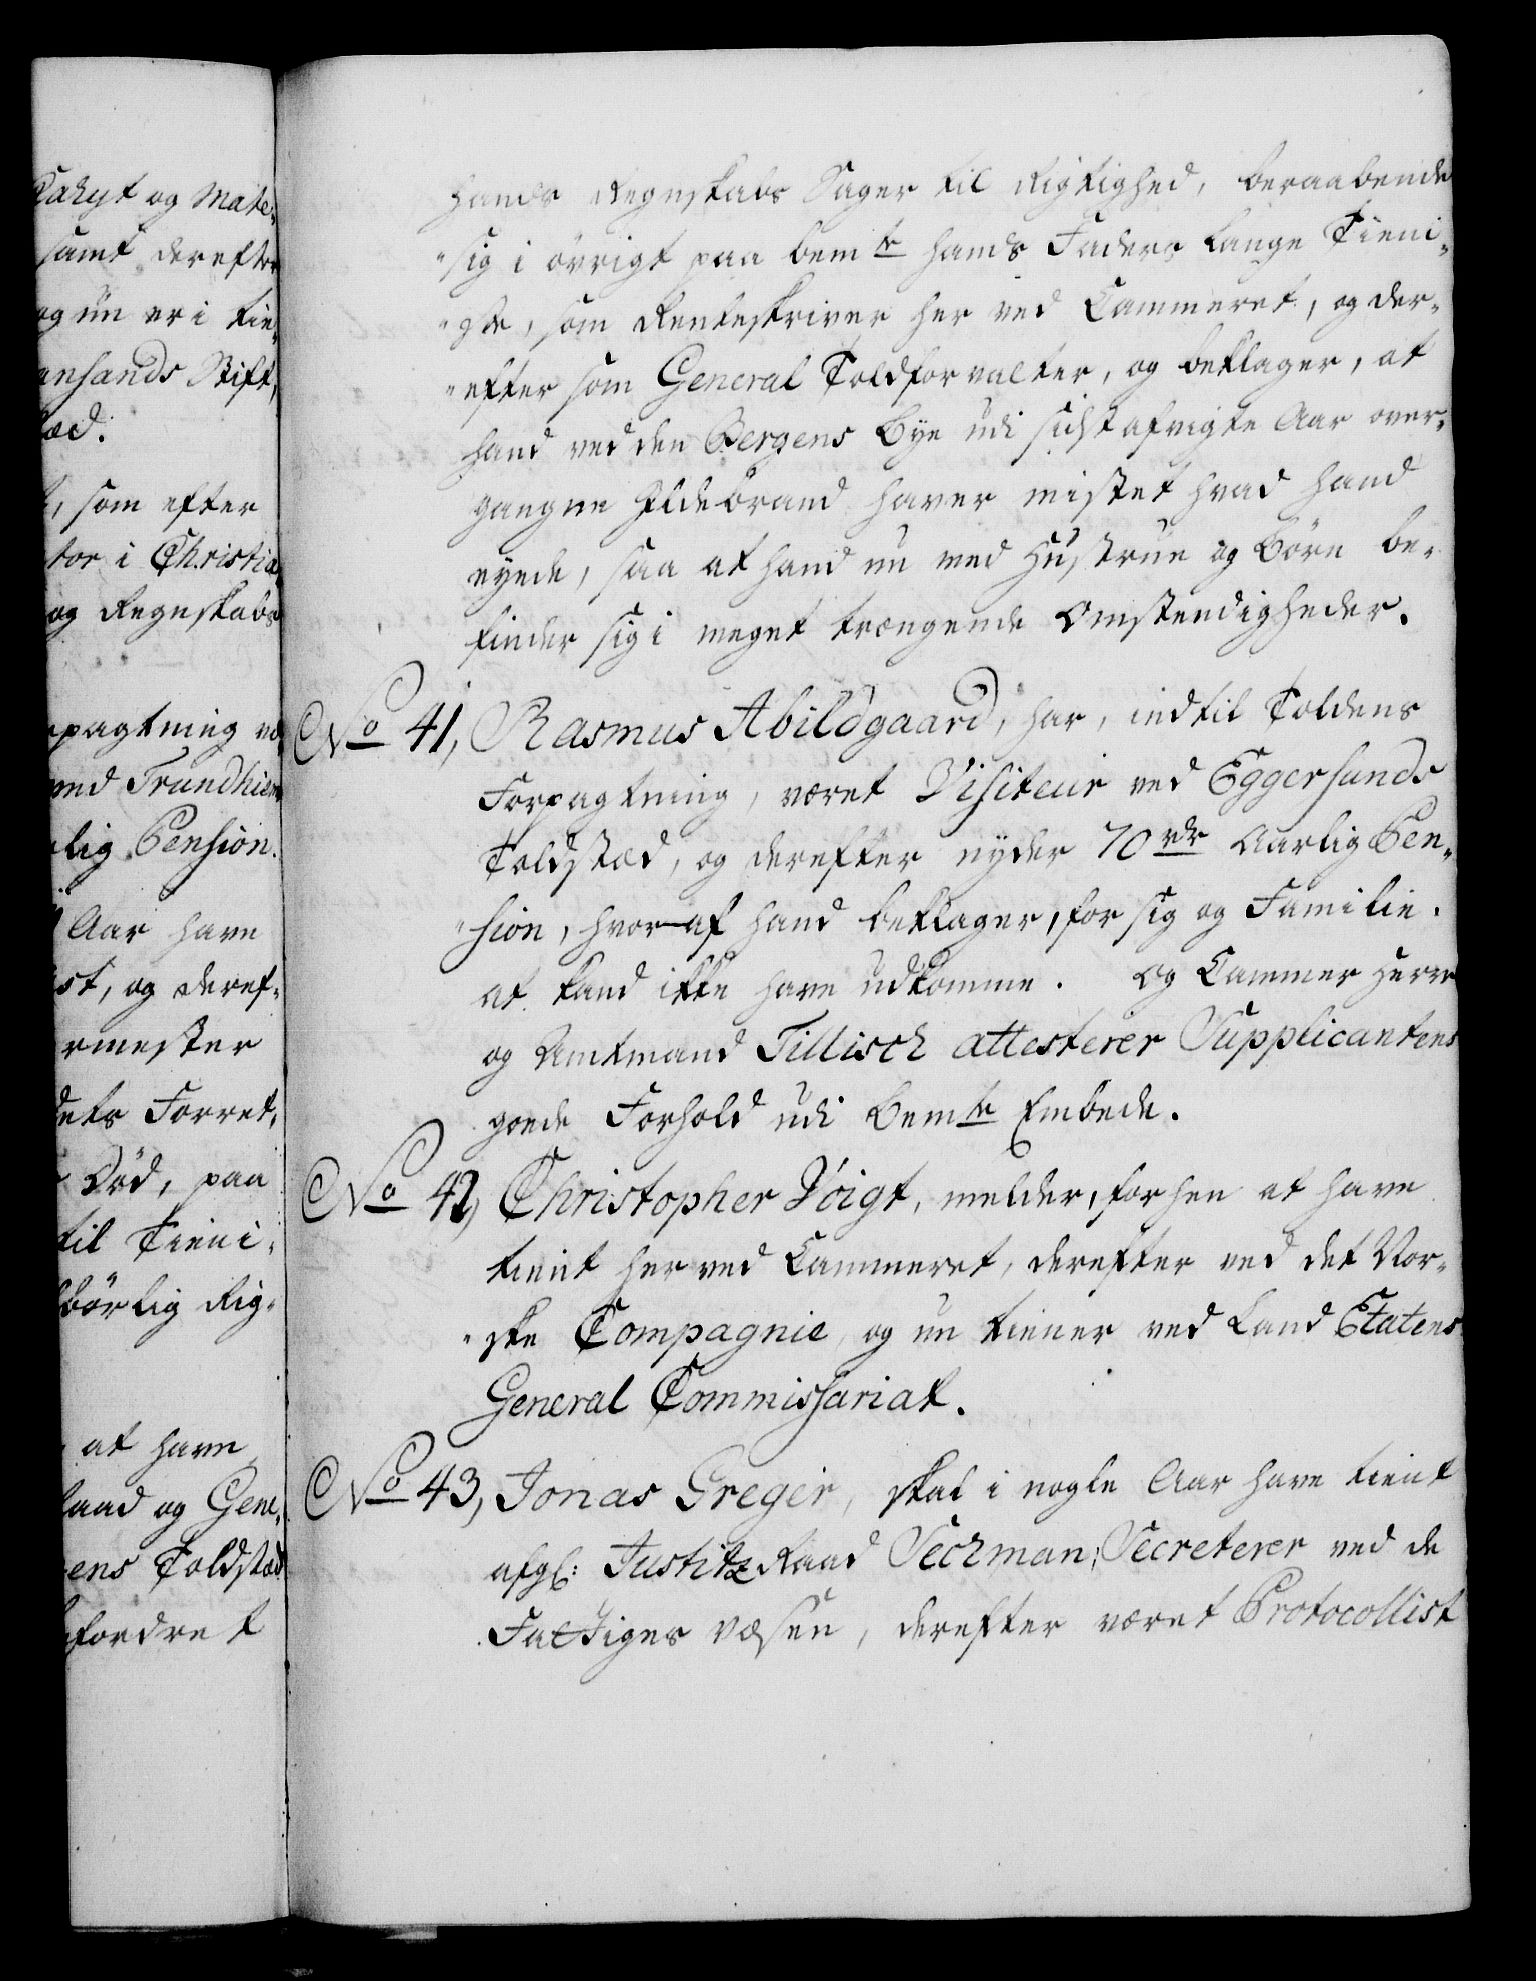 Cahyt og Mate-
samt derefter
og nu er i tie-
ansands Stift,
ed.
, som efter
tor i Christia
og Regnskabs
pagtning
med Trundhiem
lig Pension.
Aar have
st, og deref-
rmester
dets Forret,
Död, paa
til Tieni-
börlig Rig-
at have
raad og Gene,
ens Toldsted
fordret
hands Regnskabs Sager til Rigtighed, beraabende
"sig i övrigt paa bemte hands Faders lange Tieni-
"ste, som Renteskriver her ved Cammeret, og der-
"efter som General Toldforvalter, og beklager, at
hand ved den Bergens Bye udi sidstafvigte Aar over-
gangne Ildebrand haver mistet hvad hand
eyede, saa at hand nu med Hustrue og Börn be-
finder sig i meget trængende Omstendigheder.
No 41, Rasmus Abildgaard, har, indtil Toldens
Forpagtning, været Visiteur ved Eggersunds
Toldsted, og derefter nyder 70 rdr Aarlig Pen-
"sion, hvor-af hand beklager, for sig og Familie.
at kand ikke have udkomme. Og Cammer Herre
og Amtmand Tillisch attesterer Supplicantens
goede Forhold udi bemte Embede.
No 42, Christopher Voigt, melder, forhen at have
tient her ved Cammeret, derefter ved det Nor-
"ske Compagnie, og nu tiener ved Land Etatens
General Commissariat.
No 43, Jonas Greger, skal i nogle Aar have tient
afgl: Justitz Raad Seckman, Secreterer ved de
Fattiges Væsen, derefter været Protocollist